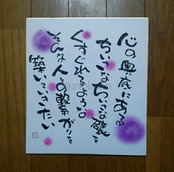 心の奥底にある
ちいさなちいさな破片
くすぐれるような
そんな人の繋がりを
築いていきたい